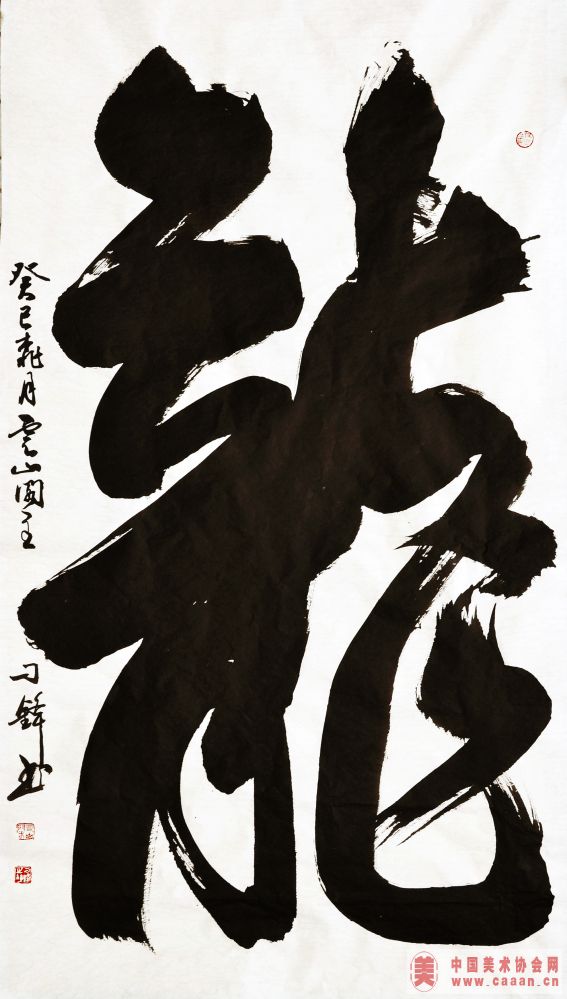 龍
癸巳 月雲山閣主
刁鋒书
美
中国美术协会网
www.caaan.cn